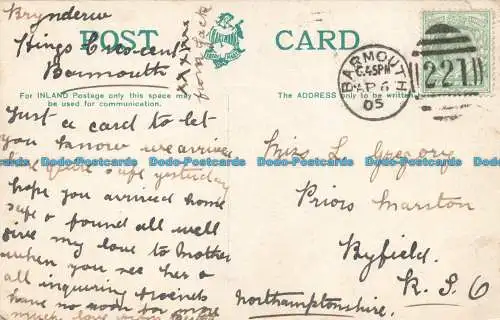 Brynderw
Kings Crescent
Barmouth
xxxxx
from Jack
POST CARD
For INLAND Postage only this space may
be used for communication.
The ADDRESS only to be written
BARMOUTH
6.45PM
AP 6
05
221
Just a card to let
you know we arrived
here quite safe yesterday
hope you arrived home
safe & found all well
give my love to Mother
when you see her &
all inquiring friends
have no room for more
much love from
Miss L Gregory
Priors Marston
Byfield.
R.S.O
Northamptonshire.
Dodo-Postcards Dodo-Postcards Dodo-Postcards Dodo-Postcards Dodo-Postcards